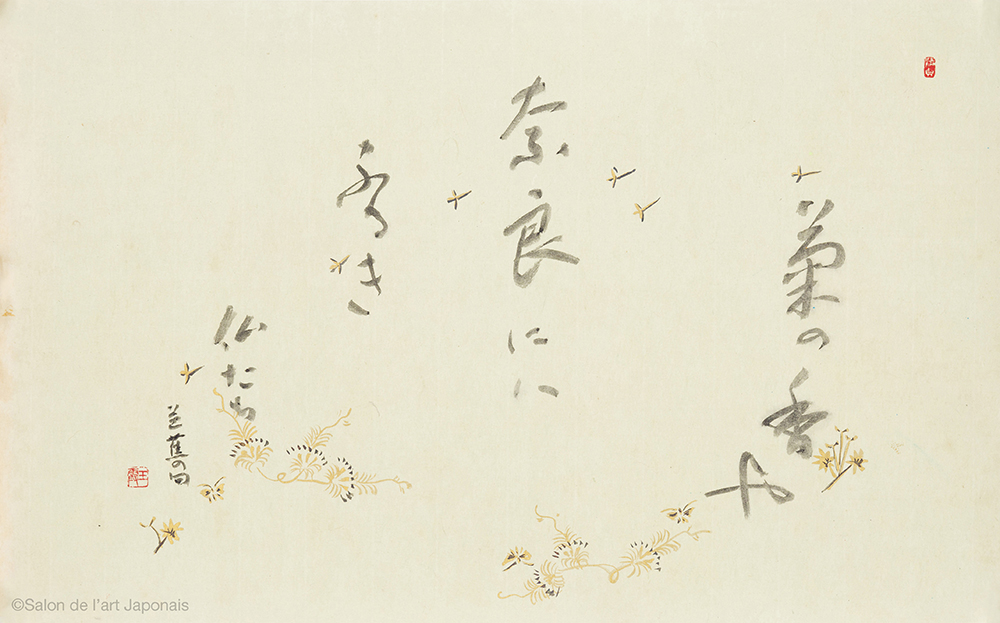 菊の香や
奈良にハ
ふるき
仏たち
芭蕉の句
©Salon de l'art Japonais